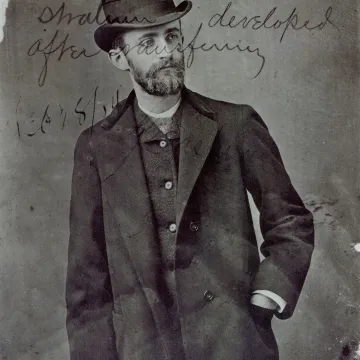 stratum developed
after transferring